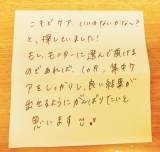 ニキビケア、いいのないかな〜?
と、探していました!
もし、モニターに選んで頂ける
のであれば、1か月、集中ケ
アをしっかりし、良い結果が
出せるようにがんばりたいと
思います